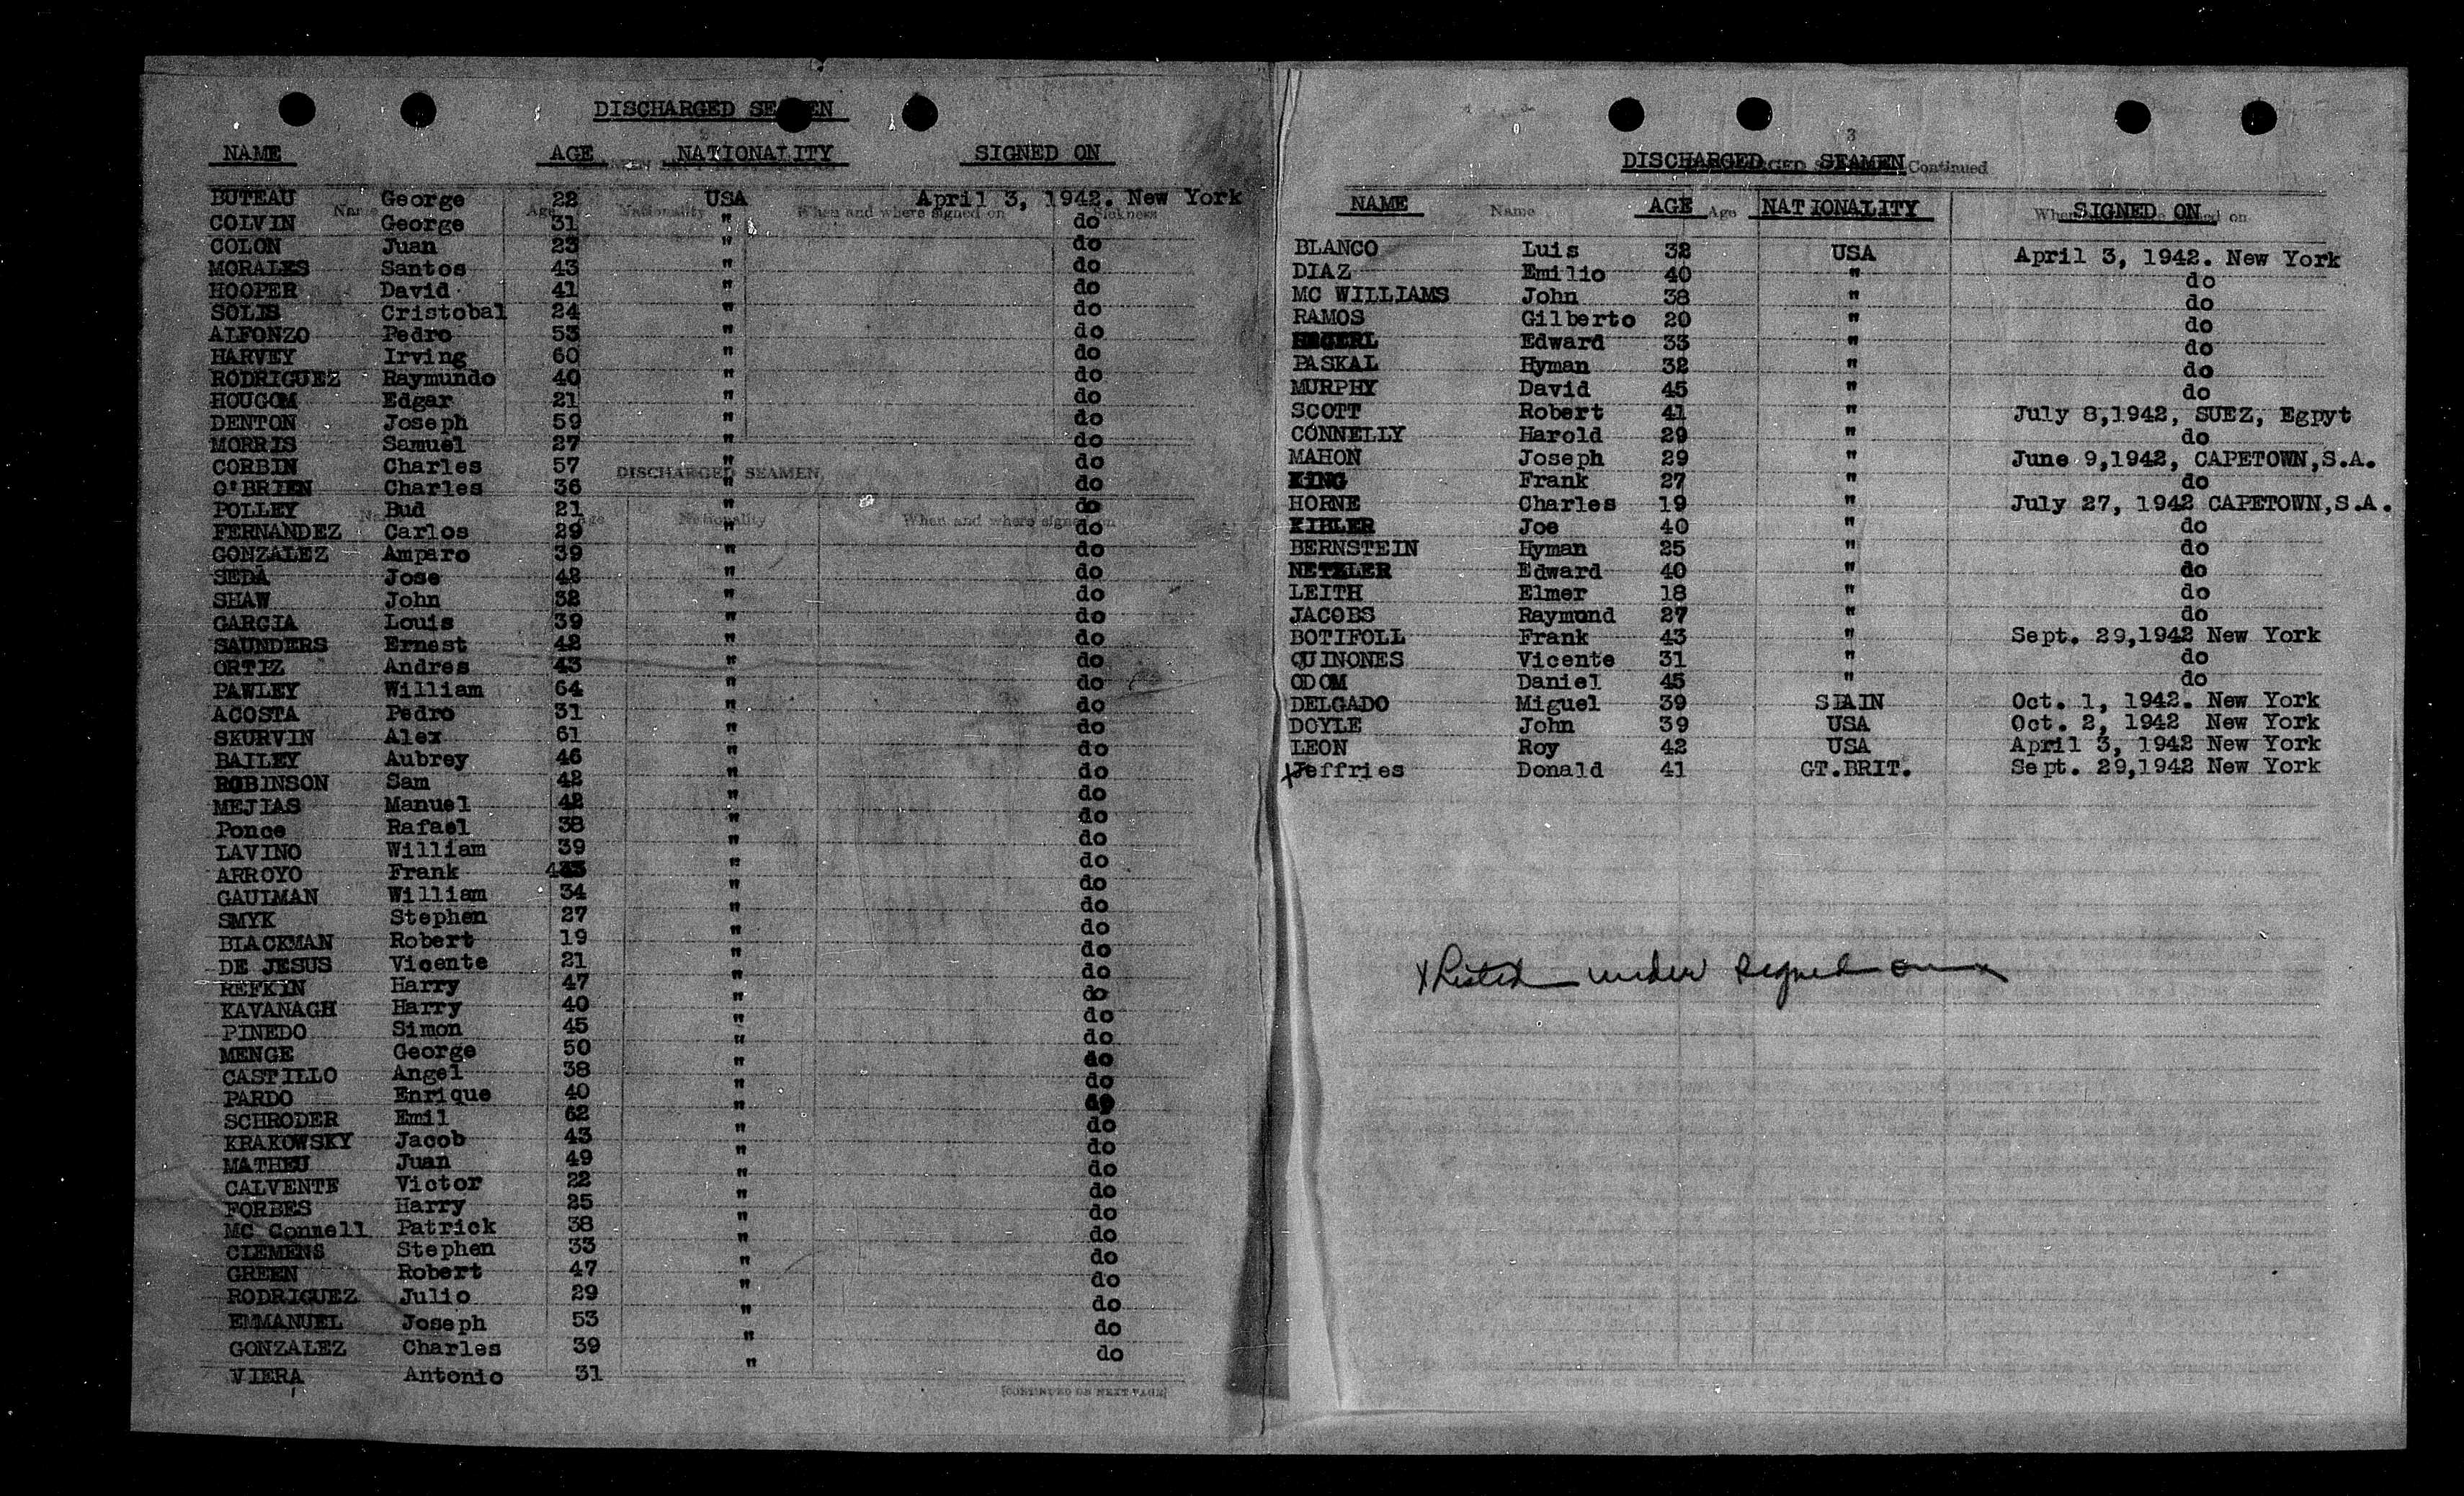 DISCHARGED SEAMEN
NAME AGE NATIONALITY SIGNED ON
Name Age Nationality When and where signed on Sickness
BUTEAU George 22 USA April 3, 1942. New York
COLVIN George 31 " do
COLON Juan 23 " do
MORALES Santos 43 " do
HOOPER David 41 " do
SOLIS Cristobal 24 " do
ALFONZO Pedro 53 " do
HARVEY Irving 60 " do
RODRIGUEZ Raymundo 40 " do
HOUGOM Edgar 21 " do
DENTON Joseph 59 " do
MORRIS Samuel 27 " do
CORBIN Charles 57 " do
DISCHARGED SEAMEN
O'BRIEN Charles 36 " do
POLLEY Bud 21 " do
Name Age Nationality When and where signed on
FERNANDEZ Carlos 29 " do
GONZALEZ Amparo 39 " do
SEDA Jose 42 " do
SHAW John 32 " do
GARCIA Louis 39 " do
SAUNDERS Ernest 42 " do
ORTIZ Andres 43 " do
PAWLEY William 64 " do
ACOSTA Pedro 31 " do
SKURVIN Alex 61 " do
BAILEY Aubrey 46 " do
ROBINSON Sam 42 " do
MEJIAS Manuel 42 " do
Ponce Rafael 38 " do
LAVINO William 39 " do
ARROYO Frank " do
GAUIMAN William 34 " do
SMYK Stephen 27 " do
BLACKMAN Robert 19 " do
DE JESUS Vicente 21 " do
REFKIN Harry 47 " do
KAVANAGH Harry 40 " do
PINEDO Simon 45 " do
MENGE George 50 " do
CASTILLO Angel 38 " do
PARDO Enrique 40 " do
SCHRODER Emil 62 " do
KRAKOWSKY Jacob 43 " do
MATHEU Juan 49 " do
CALVENTE Victor 22 " do
FORBES Harry 25 " do
MC Connell Patrick 38 " do
CLEMENS Stephen 33 " do
GREEN Robert 47 " do
RODRIGUEZ Julio 29 " do
EMMANUEL Joseph 53 " do
GONZALEZ Charles 39 " do
VIERA Antonio 31 " do
[CONTINUED ON NEXT PAGE]
3
DISCHARGED SEAMEN Continued
NAME AGE NATIONALITY SIGNED ON
Name Age When on
BLANCO Luis 32 USA April 3, 1942. New York
DIAZ Emilio 40 " do
MC WILLIAMS John 38 " do
RAMOS Gilberto 20 " do
Edward 33 " do
PASKAL Hyman 32 " do
MURPHY David 45 " do
SCOTT Robert 41 " July 8,1942, SUEZ, Egpyt
CONNELLY Harold 29 " do
MAHON Joseph 29 " June 9,1942, CAPETOWN,S.A.
KING Frank 27 " do
HORNE Charles 19 " July 27, 1942 CAPETOWN,S.A.
KIBLER Joe 40 " do
BERNSTEIN Hyman 25 " do
NETZLER Edward 40 " do
LEITH Elmer 18 " do
JACOBS Raymond 27 " do
BOTIFOLL Frank 43 " Sept. 29,1942 New York
QUINONES Vicente 31 " do
ODOM Daniel 45 " do
DELGADO Miguel 39 SPAIN Oct. 1, 1942. New York
DOYLE John 39 USA Oct. 2, 1942 New York
LEON Roy 42 USA April 3, 1942 New York
xJeffries Donald 41 GT.BRIT. Sept. 29,1942 New York
x Listed under signed on